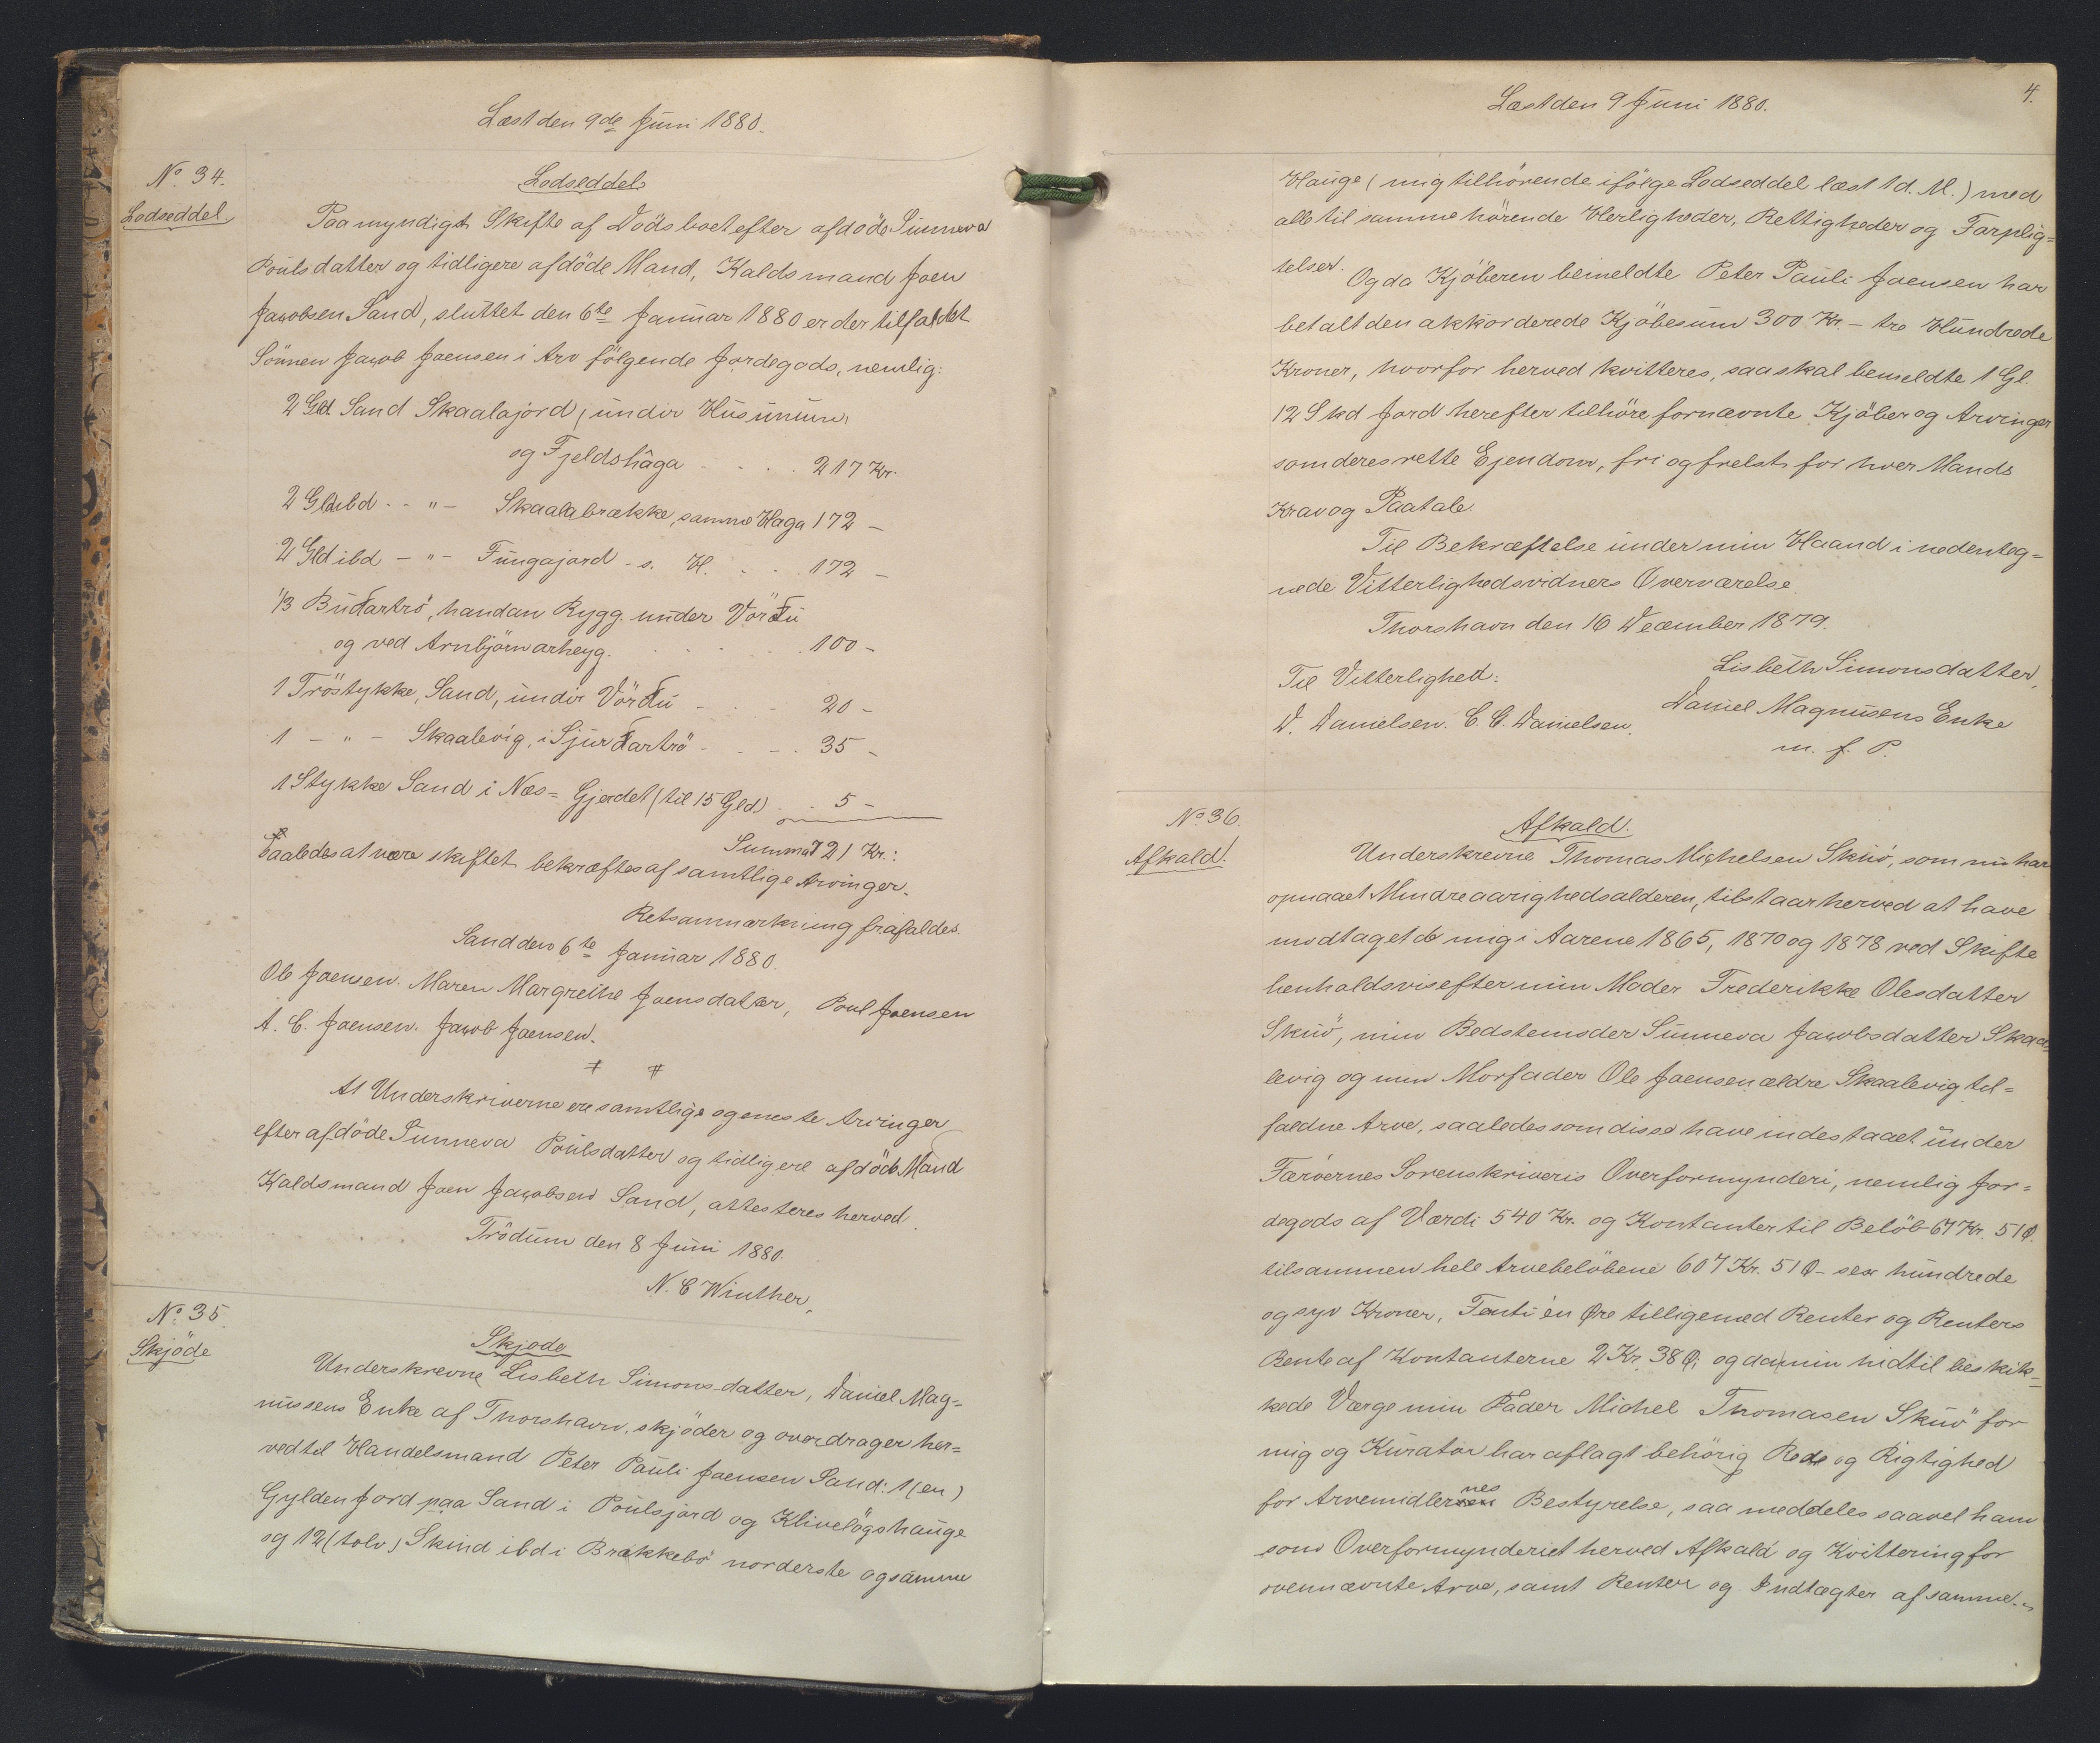 Læst den 9de Juni 1880.
No. 34.
Lodseddel
Lodseddel
Paa myndigt Skifte af Dödsboet efter afdöde Sunneva
Poulsdatter og tidligere afdöde Mand, Kaldsmand Joen
Jacobsen Sand, sluttet den 6te Januar 1880 er der tilfaldet
Sönnen Jacob Joensen i Arv fölgende Jordegods, nemlig:
2 Gld. Sand Skaalajord, undir Húsunum,
og Fjeldshaga . . . . 217 Kr.
2 Gld ibd - " - Skaalabrekke, samme Haga 172 -
2 Gld ibd - " - Fungajord - s. H. . . . 172 -
1/3 Budartrö, handan Rygg under Vördu
og ved Arnbjörnarheyg. . . . . 100 -
1 Tröstykke, Sand, undir Vördu - . - 20 -
1 - " - Skaalevig, i Sjurdartrö - . - . 35 -
1 Stykke Sand i Næs-Gjerdet (til 15 Gld) . . 5 -
Summa 721 Kr.:
Saaledes at være skiftet bekræftes af samtlige Arvinger.
Retsanmærkning frafaldes.
Sand den 6te Januar 1880.
Ole Joensen. Maren Margrethe Joensdatter, Poul Joensen
A. C. Joensen. Jacob Joensen.
At Underskriverne ere samtlige og eneste Arvinger
efter afdöde Sunneva Poulsdatter og tidligere afdöde Mand
Kaldsmand Joen Jacobsen Sand, attesteres herved.
Trödum den 8 Juni 1880.
N. C Winther,
No. 35.
Skjöde
Skjøde
Underskrevne Lisbeth Simonsdatter, Daniel Mag=
nussens Enke af Thorshavn, skjöder og overdrager her=
ved til Handelsmand Peter Pauli Joensen Sand: 1 (en)
Gylden Jord paa Sand i Poulsjord og Klivelögshauge
og 12 (tolv) Skind ibd i Brekkebö norderste og samme
4.
Læst den 9 Juni 1880.
Hauge (mig tilhörende ifölge Lodseddel læst 1 d. M.) med
alle til samme hörende Herligheder, Rettigheder og Forplig=
telser.
Og da Kjöberen bemeldte Peter Pauli Joensen har
betalt den akkorderede Kjöbesum 300 Kr. - tre Hundrede
Kroner, hvorfor herved kvitteres, saa skal bemeldte 1 Gl.
12 Skd Jord herefter tilhöre fornævnte Kjöber og Arvinger
som deres rette Ejendom, fri og frelst for hver Mands
Krav og Paatale.
Til Bekræftelse under min Haand i nedenteg=
nede Vitterlighedsvidners Overværelse.
Thorshavn den 16 December 1879.
Lisbeth Simonsdatter,
Til Vitterlighed:
Daniel Magnusens Enke
D. Danielsen. C. C. Danielsen.
m. f. P.
No. 36.
Afkald.
Afkald.
Underskrevne Thomas Michelsen Skúö, som nu har
opnaaet Mindreaarighedsalderen, tilstaar herved at have
modtaget de mig i Aarene 1865, 1870 og 1878 ved Skifte
henholdsvis efter min Moder Frederikke Olesdatter
Skuö, min Bedstemoder Sunneva Jacobsdatter Skaa=
levig og min Morfader Ole Joensen ældre Skaalevig til=
faldne Arve, saaledes som disse have indestaaet under
Færöernes Sorenskriveris Overformynderi, nemlig Jor=
degods af Værdi 540 Kr. og Kontanter til Belöb 67 Kr. 51 Ø.
tilsammen hele Arvebelöbene 607 Kr. 51 Ø - sex hundrede
og syv Kroner, Femti én Øre tilligemed Renter og Renters
Rente af Kontanterne 2 Kr. 38 Ø; og da min hidtil beskik=
kede Værge min Fader Michel Thomasen Skuö for
mig og Kurator har aflagt behörig Rede og Rigtighed
for Arvemidlernes Bestyrelse, saa meddeles saavel ham
som Overformynderiet herved Afkald og Kvittering for
ovennævnte Arve, samt Renter og Indtægter af samme.